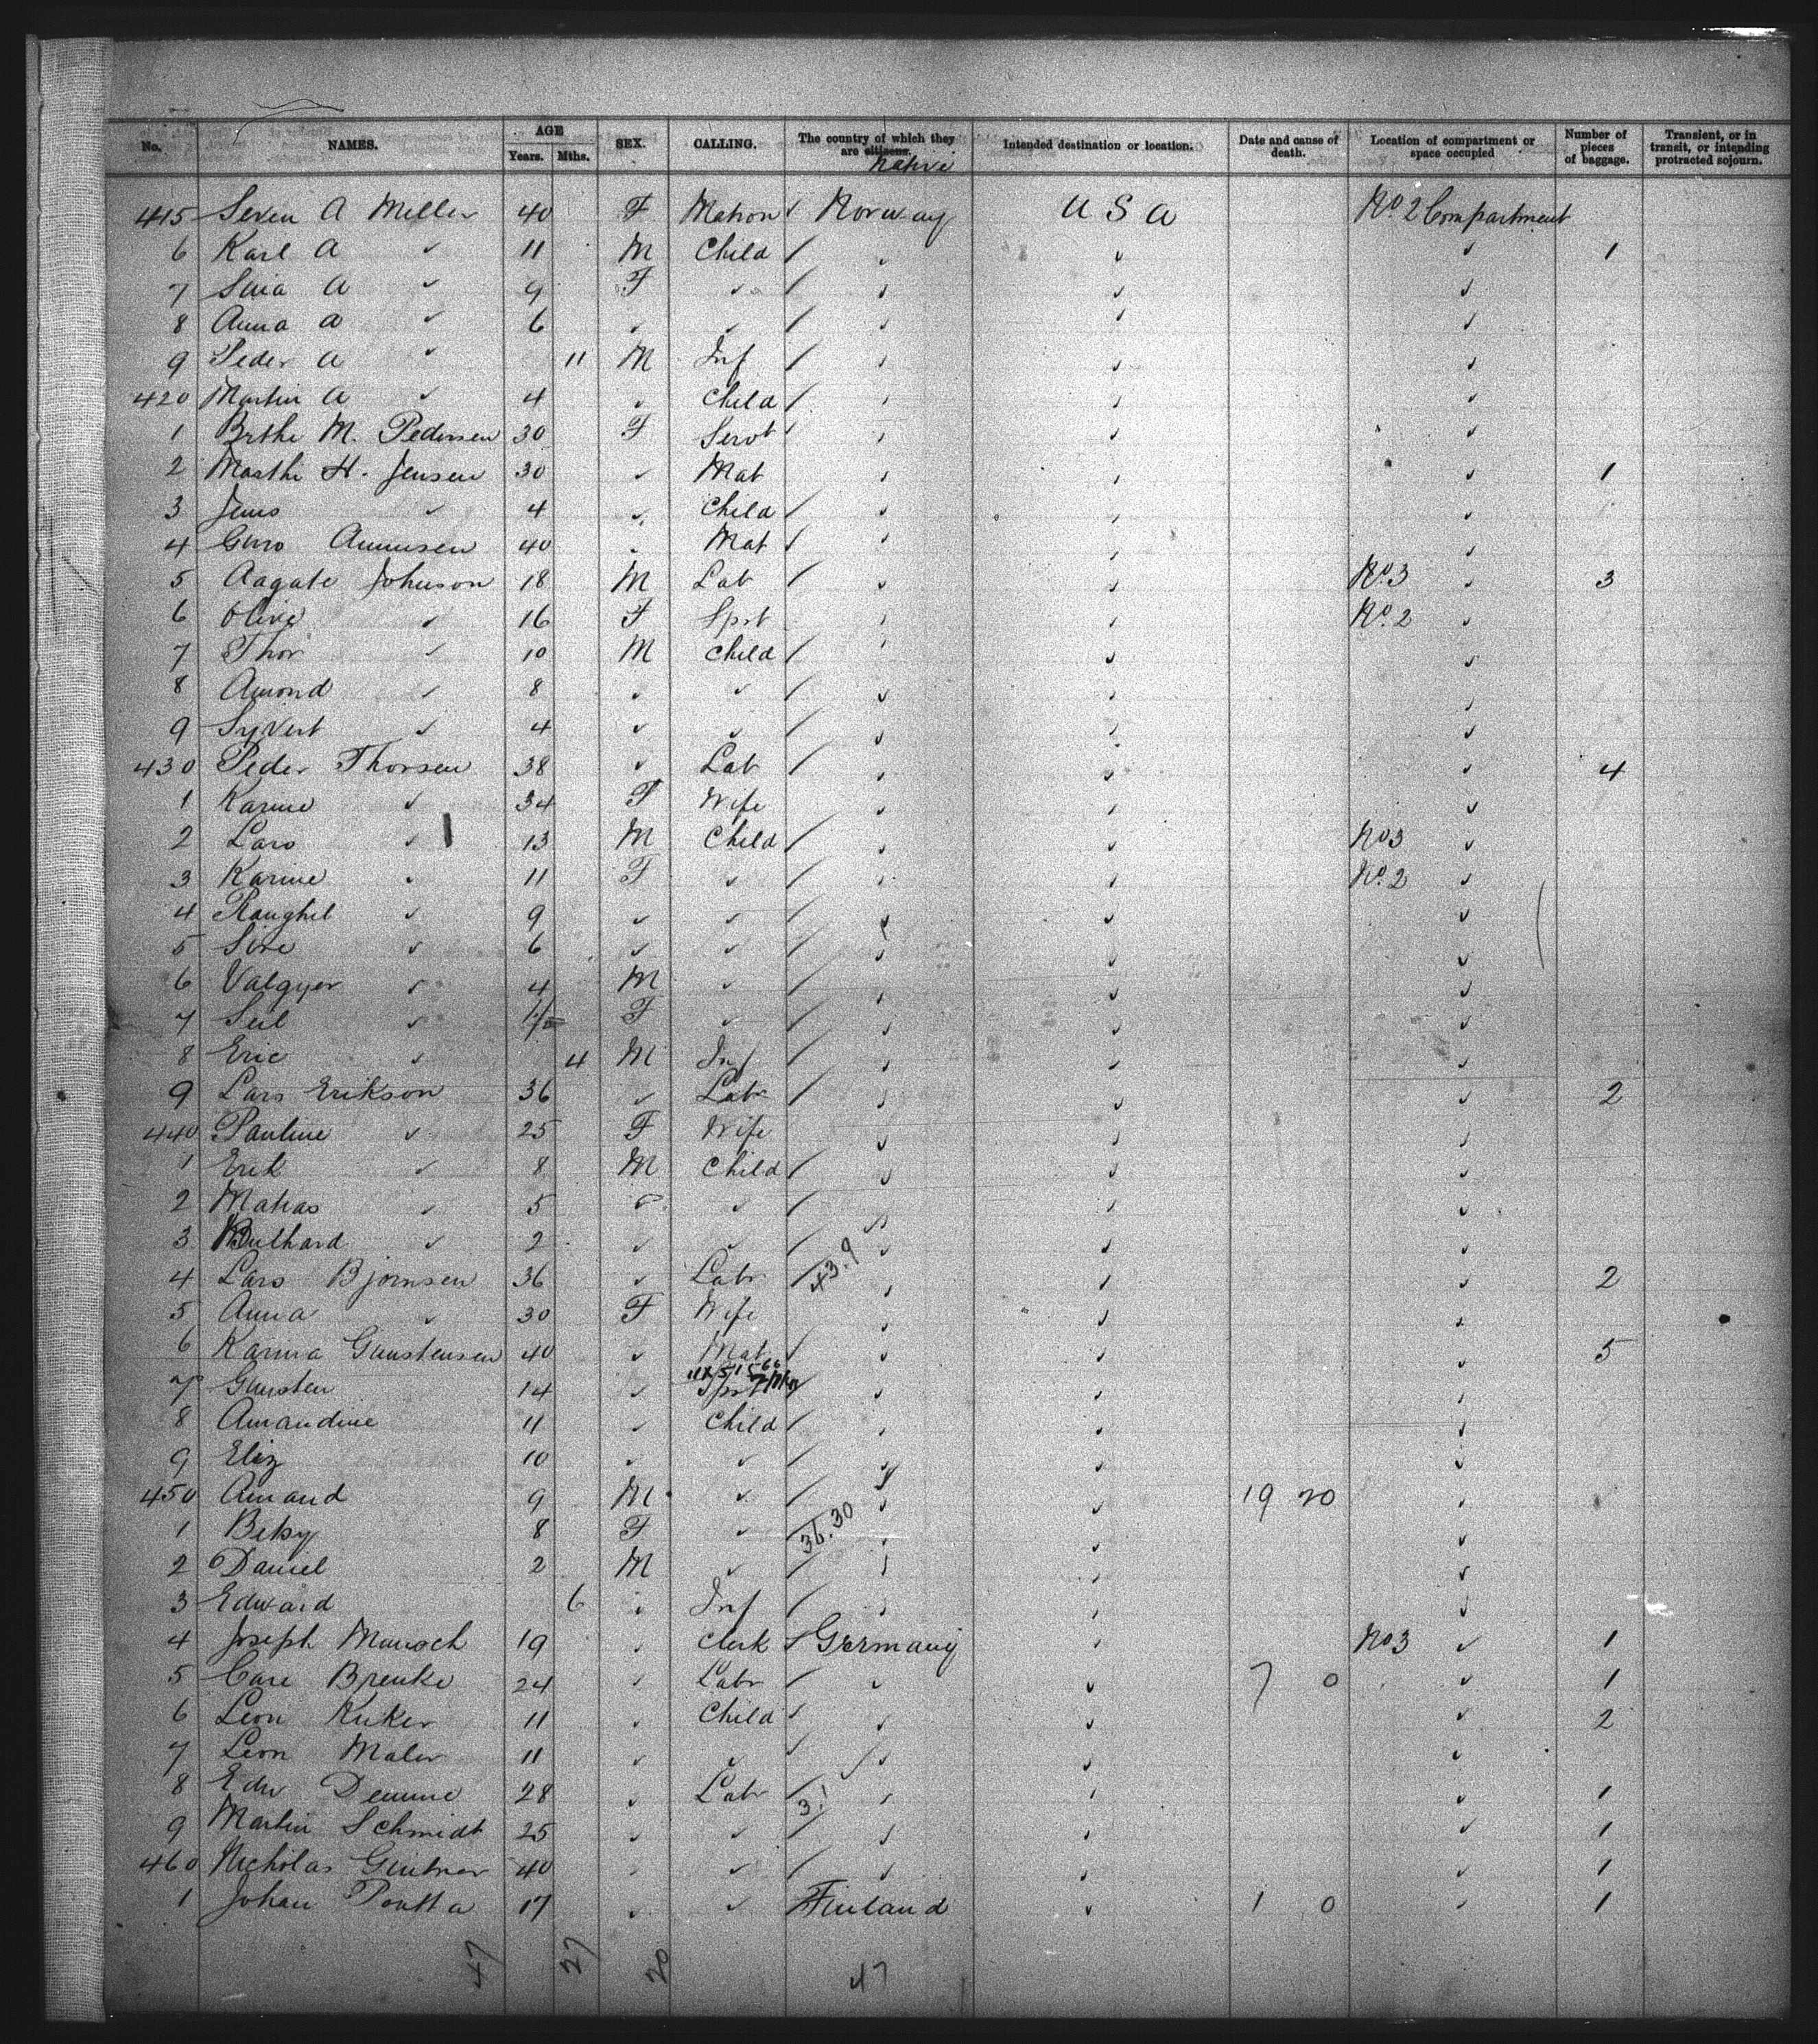 No. NAMES. AGE Years. Mths. SEX. CALLING. The country of which they are citizens. native Intended destination or location. Date and cause of death. Location of compartment or space occupied Number of pieces of baggage. Transient, or in transit, or intending protracted sojourn.
415 Seven A Miller 40 F Matron Norway U S A No 2 Compartment
6 Karl A ✓ 11 M Child ✓ ✓ ✓ 1
7 Sina A ✓ 9 F ✓ ✓ ✓ ✓
8 Anna A ✓ 6 ✓ ✓ ✓ ✓ ✓
9 Peder A ✓ 11 M Inf ✓ ✓ ✓
420 Martin A ✓ 4 ✓ Child ✓ ✓ ✓
1 Brthe M. Pedersen 30 F Servt ✓ ✓ ✓
2 Marthe H. Jensen 30 ✓ Mat ✓ ✓ ✓ 1
3 Jens ✓ 4 ✓ Child ✓ ✓ ✓
4 Guro Amunsen 40 ✓ Mat ✓ ✓ ✓
5 Aagate Johnson 18 M Lab ✓ ✓ No. 3 ✓ 3
6 Olive ✓ 16 F Spst ✓ ✓ No. 2 ✓
7 Thor ✓ 10 M Child ✓ ✓ ✓
8 Amond ✓ 8 ✓ ✓ ✓ ✓ ✓
9 Syvert ✓ 4 ✓ ✓ ✓ ✓ ✓
430 Peder Thorsen 38 ✓ Lab ✓ ✓ ✓ 4
1 Karine ✓ 34 F Wife ✓ ✓ ✓
2 Lars ✓ 13 M Child ✓ ✓ No 3 ✓
3 Karine ✓ 11 F ✓ ✓ ✓ No. 2 ✓
4 Raughil ✓ 9 ✓ ✓ ✓ ✓ ✓
5 Sine ✓ 6 ✓ ✓ ✓ ✓ ✓
6 Valgyer ✓ 4 M ✓ ✓ ✓ ✓
7 Seil ✓ F ✓ ✓ ✓ ✓
8 Eric ✓ 4 M Inf ✓ ✓ ✓
9 Lars Erikson 36 ✓ Labr ✓ ✓ ✓ 2
440 Pauline ✓ 25 F Wife ✓ ✓ ✓
1 Erik ✓ 8 M Child ✓ ✓ ✓
2 Matias ✓ 5 ✓ ✓ ✓ ✓ ✓
3 ✓ 2 ✓ ✓ ✓ ✓ ✓
4 Lars Bjornsen 36 ✓ Labr 43.9 ✓ ✓ ✓ 2
5 Anna ✓ 30 F Wife ✓ ✓ ✓
6 Karina Gunstensen 40 ✓ Mat ✓ ✓ ✓ 5
7 Gunsten 14 ✓ Spst ✓ ✓ ✓
8 Amandine 11 ✓ Child ✓ ✓ ✓
9 Eliz 10 ✓ ✓ ✓ ✓ ✓
450 Amand 9 M ✓ ✓ ✓ 19 20 ✓
1 Betsy 8 F ✓ 36.30 ✓ ✓ ✓
2 Daniel 2 M ✓ ✓ ✓ ✓
3 Edward 6 ✓ Inf ✓ ✓ ✓
4 Joseph Mansch 19 ✓ Clerk Germany ✓ No 3 ✓ 1
5 Carl Brenke 24 ✓ Labr ✓ ✓ 7 0 ✓ 1
6 Leon Kuker 11 ✓ Child ✓ ✓ ✓ 2
7 Leon Maler 11 ✓ ✓ ✓ ✓ ✓
8 Edw Demme 28 ✓ Labr 3.1 ✓ ✓ ✓ 1
9 Martin Schmidt 25 ✓ ✓ ✓ ✓ ✓ 1
460 Nicholas Gintner 40 ✓ ✓ ✓ ✓ ✓ 1
1 Johan Poutta 17 ✓ ✓ Finland ✓ 1 0 ✓ 1
47 27 20 47